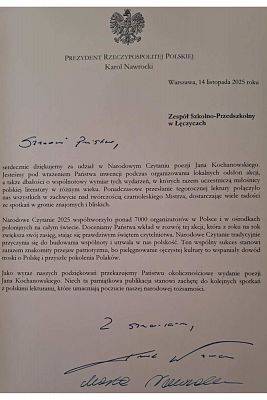 PREZYDENT RZECZYPOSPOLITEJ POLSKIEJ
Karol Nawrocki
Warszawa, 14 listopada 2025 roku
Zespół Szkolno-Przedszkolny
w Łęczycach
Szanowni Państwo,
serdecznie dziękujemy za udział w Narodowym Czytaniu poezji Jana Kochanowskiego.
Jesteśmy pod wrażeniem Państwa inwencji podczas organizowania lokalnych odsłon akcji,
a także dbałości o wspólnotowy wymiar tych wydarzeń, w których razem uczestniczą miłośnicy
polskiej literatury w różnym wieku. Ponadczasowe przesłanie tegorocznej lektury połączyło
nas wszystkich w zachwycie nad twórczością czarnoleskiego Mistrza, dostarczając wiele radości
ze spotkań w gronie znajomych i bliskich.
Narodowe Czytanie 2025 współtworzyło ponad 7000 organizatorów w Polsce i w ośrodkach
polonijnych na całym świecie. Doceniamy Państwa wkład w rozwój tej akcji, która z roku na rok
zwiększa swój zasięg, stając się prawdziwym świętem czytelnictwa. Narodowe Czytanie tradycyjnie
przyczynia się do budowania wspólnoty i utrwala w nas polskość. Ten wspólny sukces stanowi
zarazem znakomity przejaw patriotyzmu, bo pielęgnowanie ojczystej kultury to wspaniały dowód
troski o Polskę i przyszłe pokolenia Polaków.
Jako wyraz naszych podziękowań przekazujemy Państwu okolicznościowe wydanie poezji
Jana Kochanowskiego. Niech ta pamiątkowa publikacja stanowi zachętę do kolejnych spotkań
z polskimi lekturami, które umacniają poczucie naszej narodowej tożsamości.
Z szacunkiem,
Marta Nawrocka